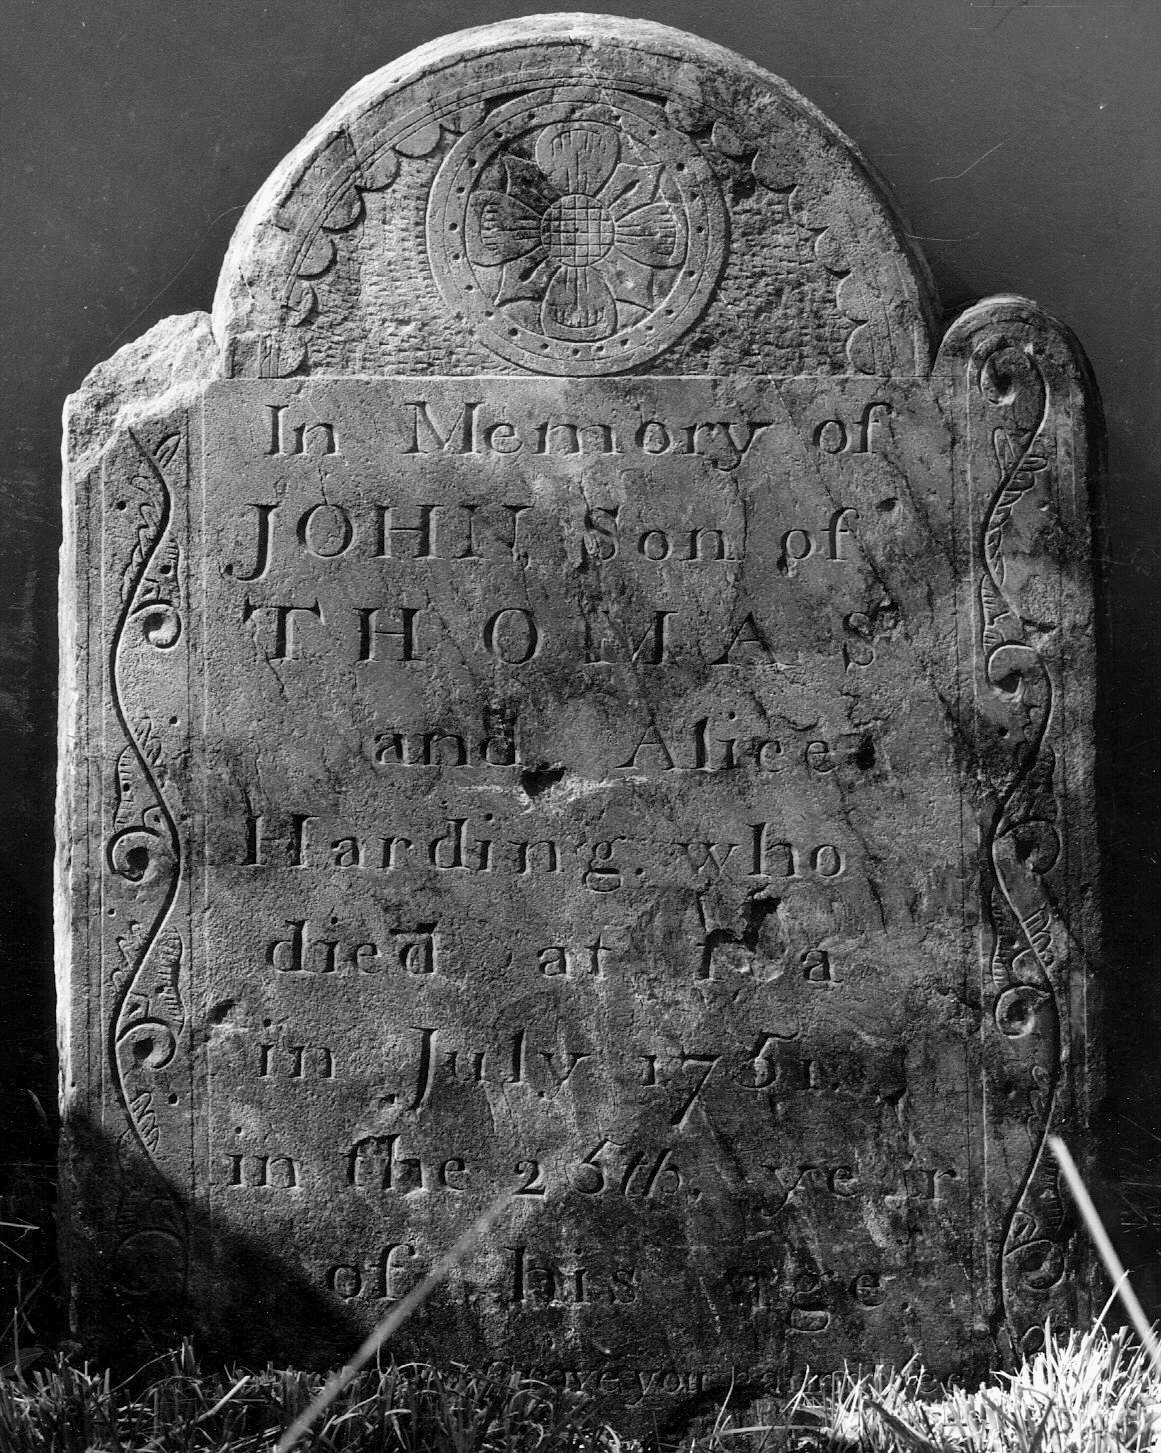 In Memory of
JOHN Son of
THOMAS
and Alice
Harding. who
died at Sea
in July 175
in the 26th. year
of his age
ave you